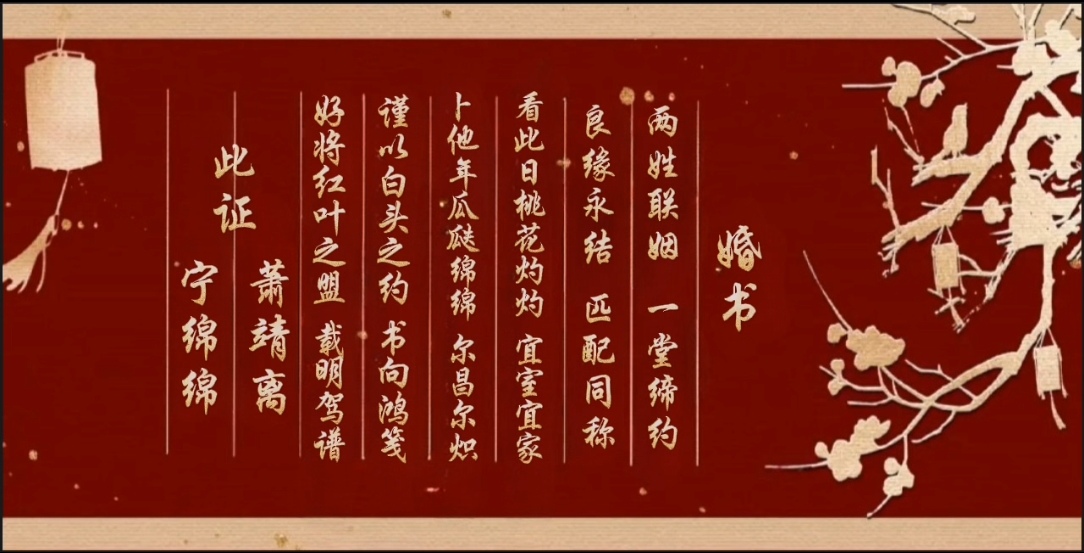 婚书
两姓联姻 一堂缔约
良缘永结 匹配同称
看此日桃花灼灼 宜室宜家
卜他年瓜瓞绵绵 尔昌尔炽
谨以白头之约 书向鸿笺
好将红叶之盟 载明驾谱
此证
萧靖离
宁绵绵